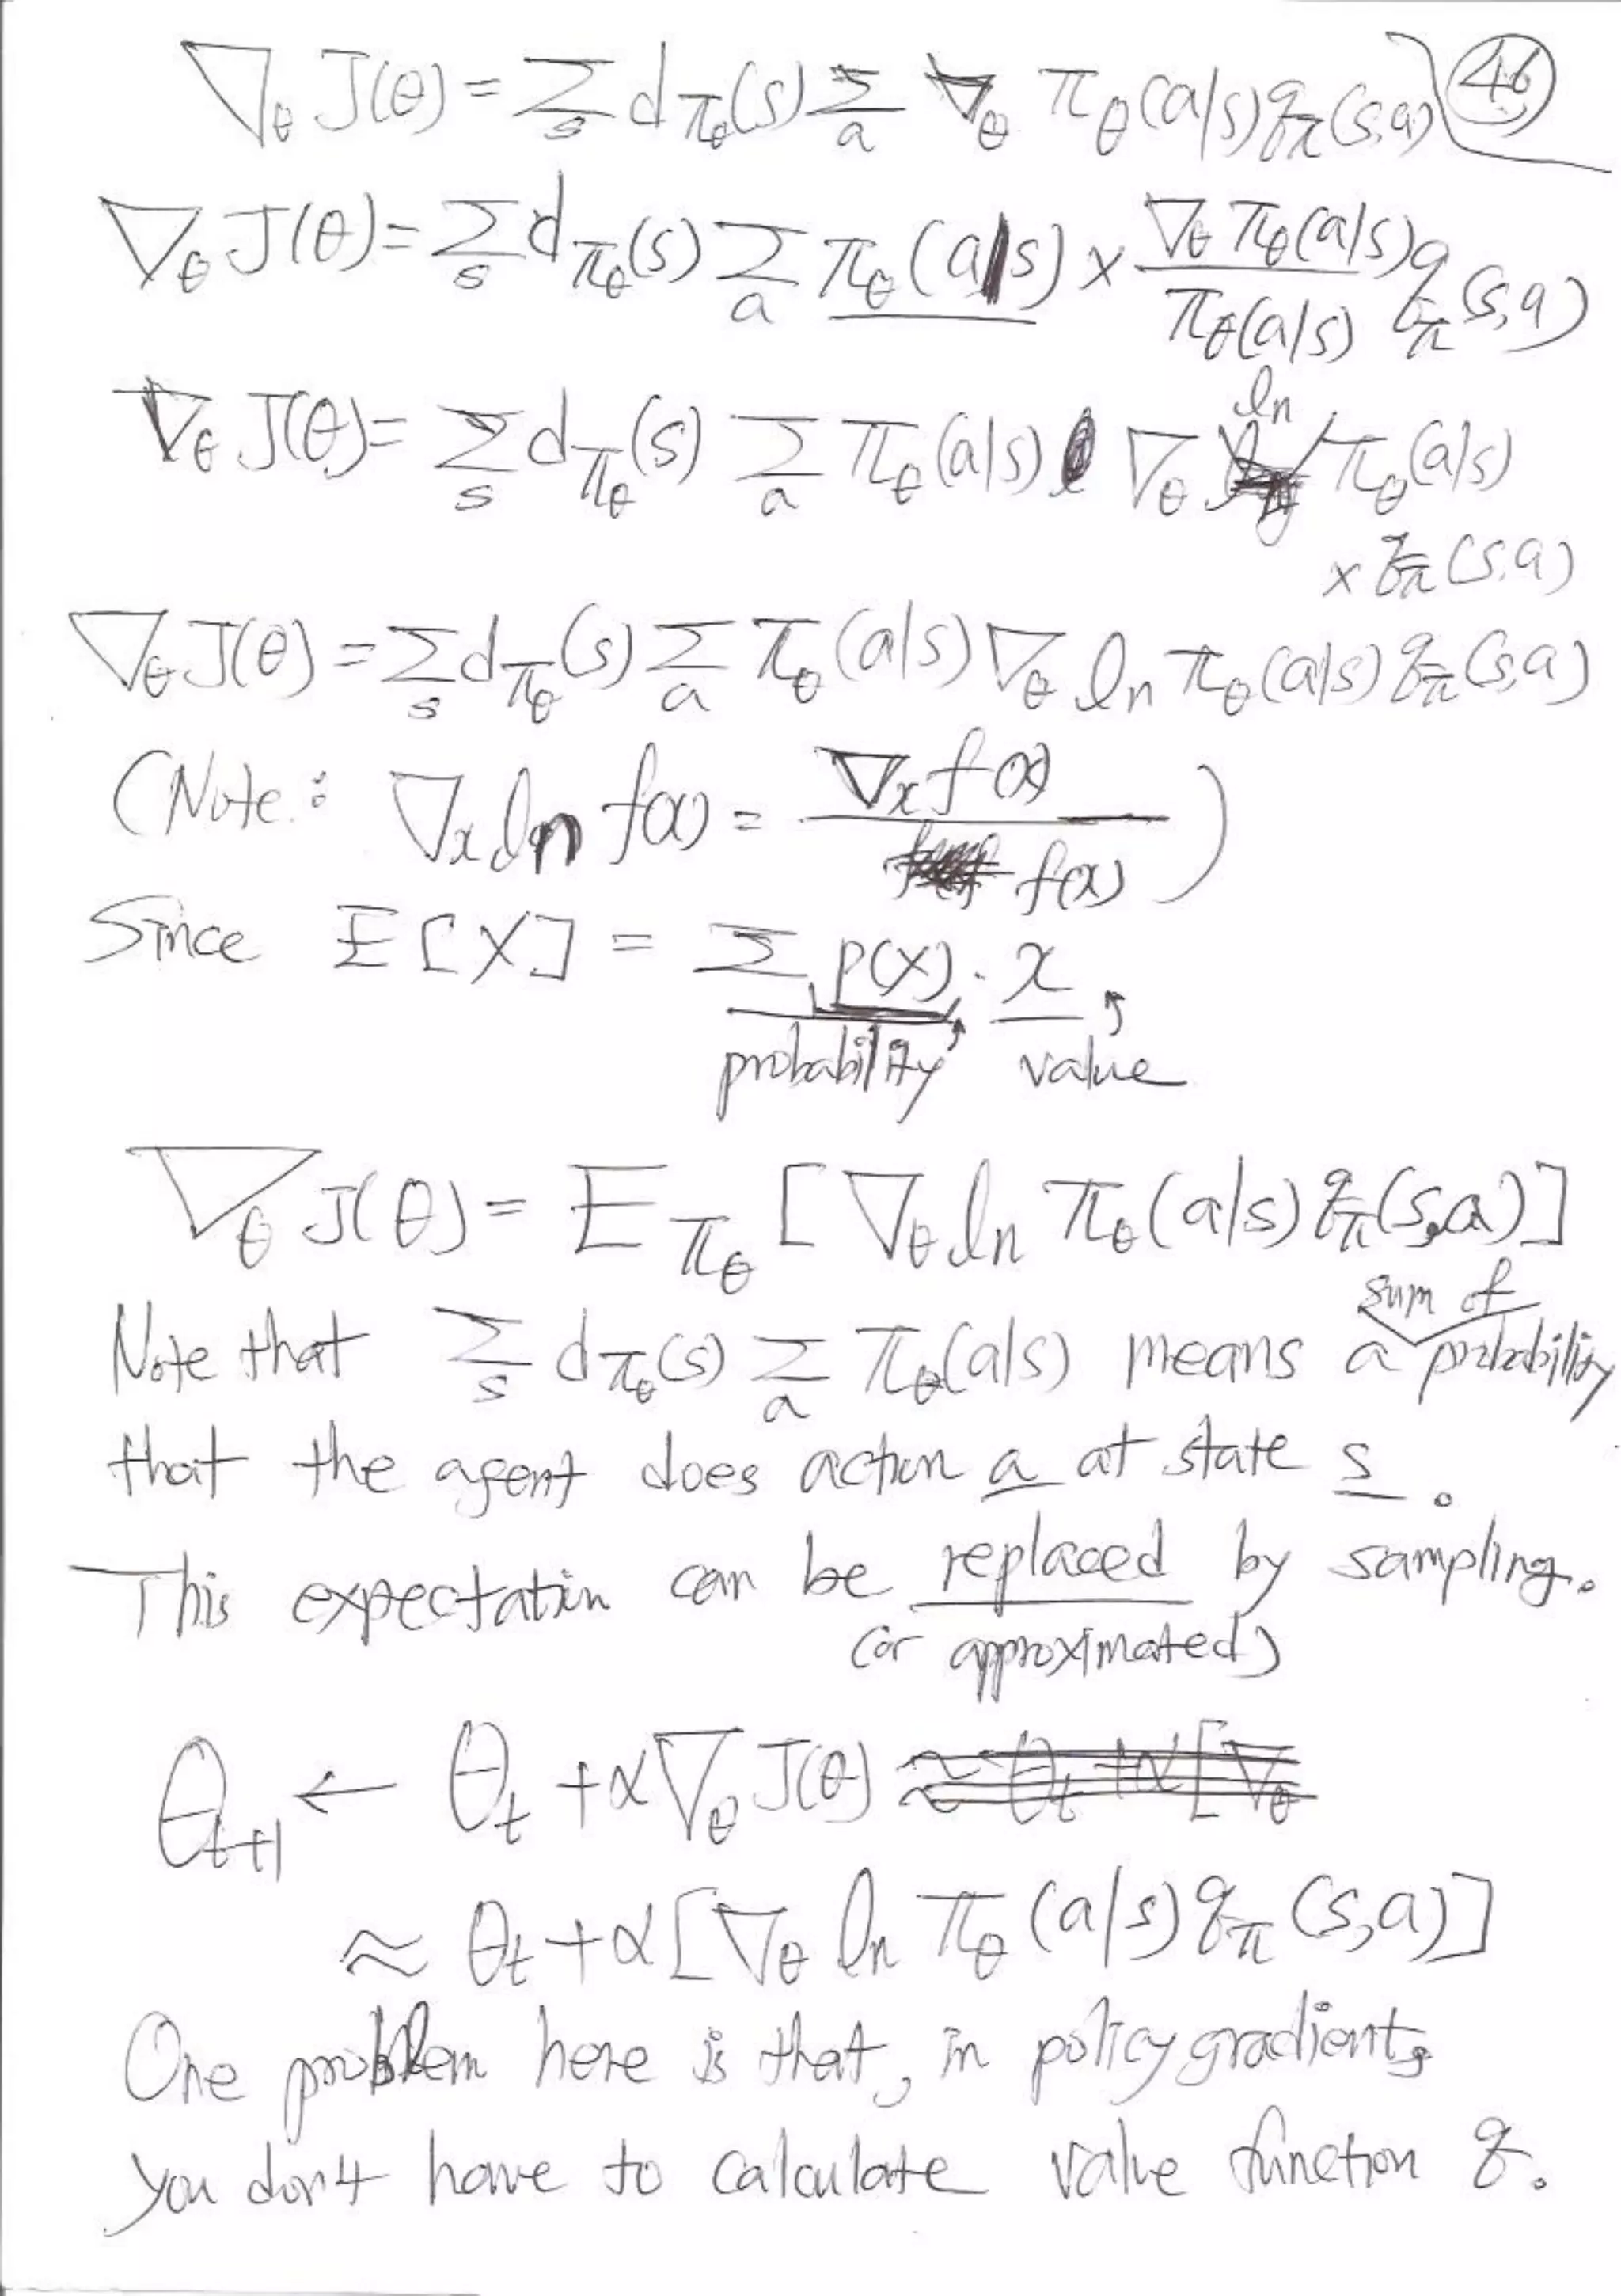 ∇_θ J(θ) = Σ_s d_{π_θ}(s) Σ_a ∇_θ π_θ(a|s) q_π(s,a) 46
∇_θ J(θ) = Σ_s d_{π_θ}(s) Σ_a π_θ(a|s) × ∇_θ π_θ(a|s) / π_θ(a|s) q_π(s,a)
∇_θ J(θ) = Σ_s d_{π_θ}(s) Σ_a π_θ(a|s) ∇_θ ln π_θ(a|s)
× q_π(s,a)
∇_θ J(θ) = Σ_s d_{π_θ}(s) Σ_a π_θ(a|s) ∇_θ ln π_θ(a|s) q_π(s,a)
(Note: ∇_x ln f(x) = ∇_x f(x) / f(x))
Since E[X] = Σ p(x) · x,
probability, value
∇_θ J(θ) = E_{π_θ} [∇_θ ln π_θ(a|s) q_π(s,a)]
sum of
Note that Σ_s d_{π_θ}(s) Σ_a π_θ(a|s) means a probability
that the agent does action a at state s.
This expectation can be replaced by sampling.
(or approximated)
θ_{t+1} ← θ_t + α∇_θ J(θ) ≈ θ_t + α[∇_θ
≈ θ_t + α[∇_θ ln π_θ(a|s) q_π(s,a)]
One problem here is that, in policy gradients,
you don't have to calculate value function q.